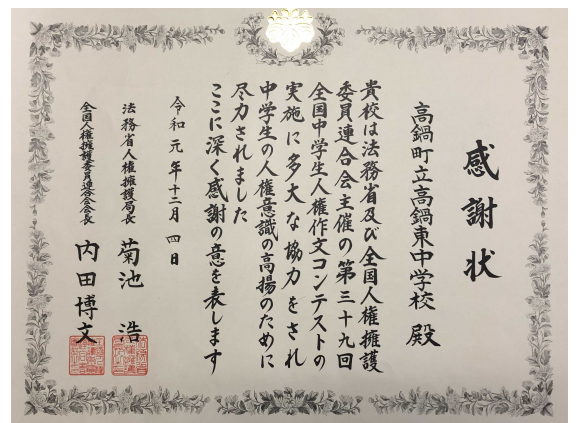 感謝状
高鍋町立高鍋東中学校 殿
貴校は法務省及び全国人権擁護
委員連合会主催の第三十九回
全国中学生人権作文コンテストの
実施に多大な協力をされ
中学生の人権意識の高揚のために
尽力されました
ここに深く感謝の意を表します
令和元年十二月四日
法務省人権擁護局長 菊池浩
全国人権擁護委員連合会会長 内田博文